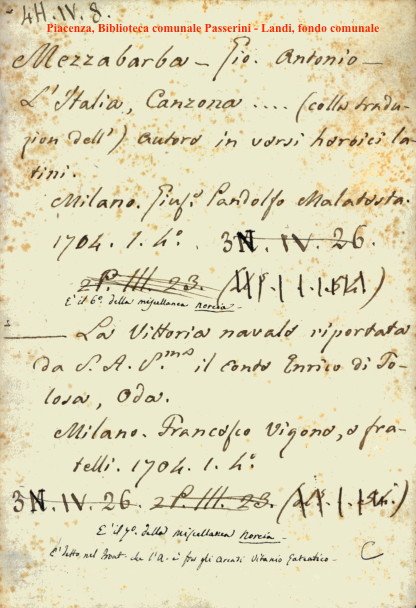 4H. IV. 8.
Piacenza, Biblioteca comunale Passerini - Landi, fondo comunale
Mezzabarba - Gio. Antonio -
L'Italia, Canzona .... (colla tradu-
zion dell') autore in versi heroici la-
tini.
Milano. Gius.e Pandolfo Malatesta.
1704. 1. 4°. 3N. IV. 26.
2P. III. 23.
E' il 6° della miscellanea Norcia -
La Vittoria navale riportata
da S. A. S.ma il Conte Enrico di To-
losa, Oda.
Milano. Francesco Vigone, e fra-
telli. 1704. 1. 4°.
3N. IV. 26. 2P. III. 23.
E' il 7° della miscellanea Norcia -
E' detto, nel front. che l'A. è fra gli Arcadi
C